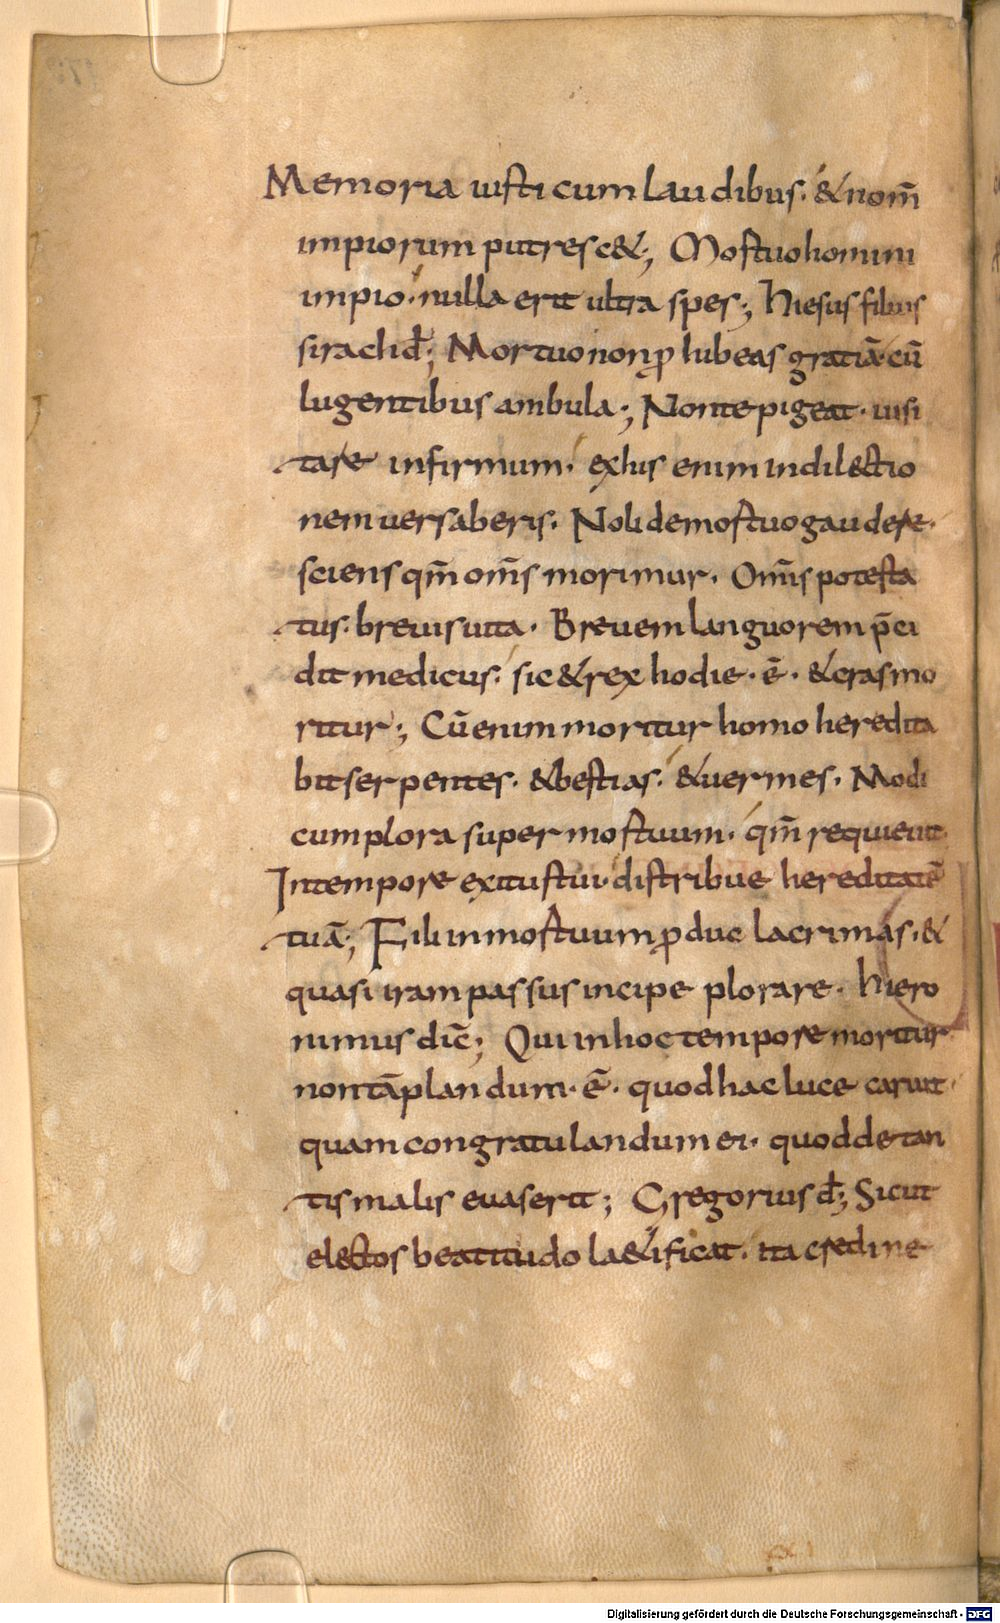 Memoria iusti cum laudibus. & nom̄
impiorum putresc&; Mortuo homini
impio. nulla erit ultra spes; Hiesus filius
sirach id; Mortuo non ꝓhibeas gratiā. cū
lugentibus ambula; Non te pigeat. uisi
tare infirmum. ex his enim in dilectio
nem uersaberis. Noli de mortuo gaudere.
sciens qm̄ om̄s morimur. Om̄is potesta
tus. breuis uita. Breuem languorem p̄ci
dit medicus. sic & rex hodie. ē. & cras mo
ritur; Cū enim moritur homo heredita
bit serpentes. & bestias. & uermes. Modi
cum plora super mortuum. qm̄ requieuit.
In tempore exitus tui. distribue hereditatē
tuā; Fili in mortuum ꝓduc lacrimas. &
quasi iram passus incipe plorare. Hiero
nimus dic̄; Qui in hoc tempore moritur
non tā plandum. ē. quod hac luce caruit.
quam congratulandum ei. quod de tan
tis malis euaserit; Gregorius d̄; Sicut
electos beatitudo laetificat. ita credi ne
Digitalisierung gefördert durch die Deutsche Forschungsgemeinschaft - DFG